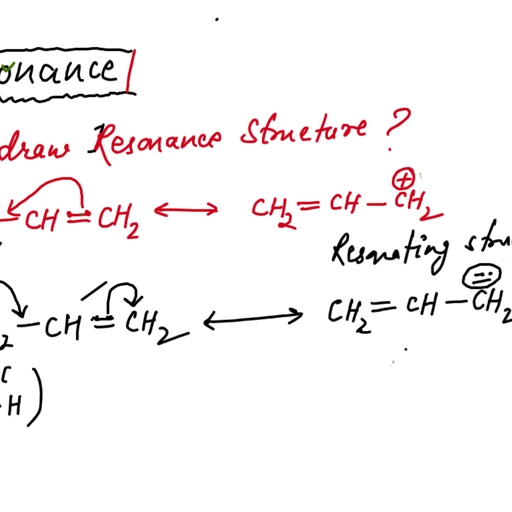 onance
draw Resonance Structure ?
–CH=CH₂ ↔ CH₂=CH–CH₂ ⊕
Resonating stru
₂–CH=CH₂ ↔ CH₂=CH–CH₂ ⊖
H)